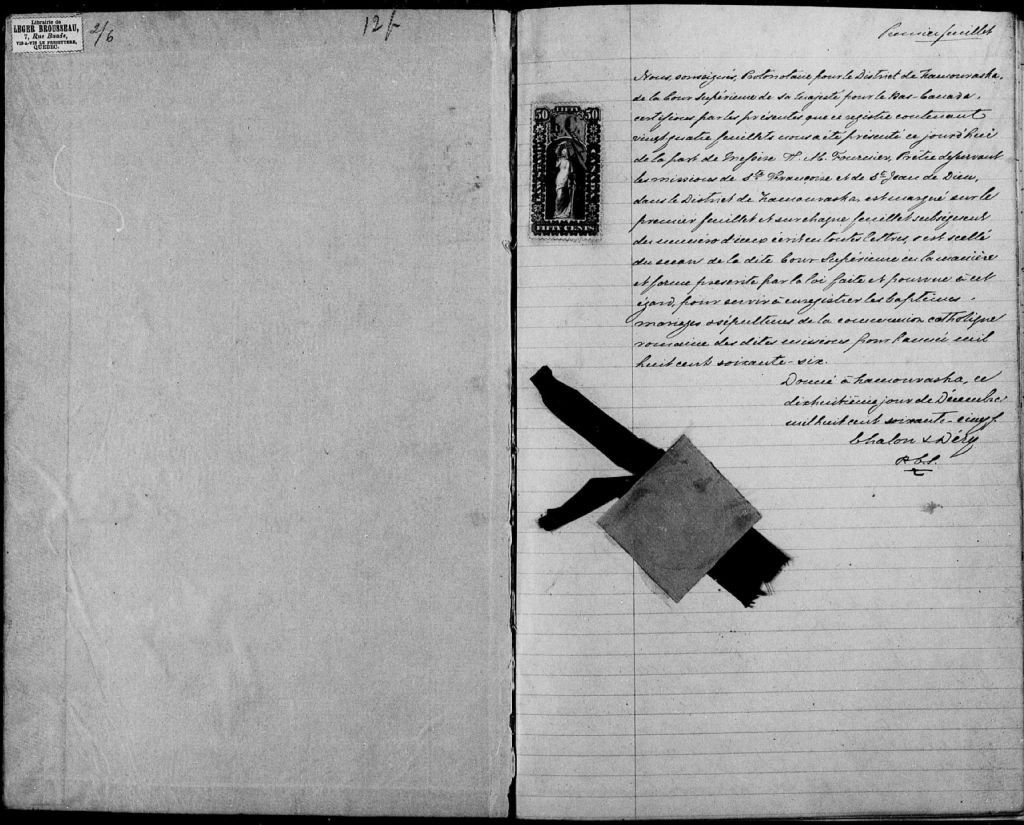 Librairie de
LEGER BROUSSEAU,
7, Rue Buade,
VIS-A-VIS LE PRESBYTERE,
QUEBEC.
2/6
12/-
Premier feuillet
50 FIFTY 50
FIFTY CENTS
Nous, soussignés, Protonotaire pour le District de Kamouraska,
de la Cour Supérieure de sa Majesté pour le Bas-Canada,
certifions par les présentes que ce registre contenant
vingt quatre feuillets nous a été présenté ce jourd'hui
de la part de Messire H. M. Fournier, Prêtre desservant
les missions de Ste Françoise et de St Jean de Dieu,
dans le District de Kamouraska, est marqué sur le
premier feuillet et sur chaque feuillet subséquent
du numéro d'iceux écrit en toutes lettres, & est scellé
du sceau de la dite Cour Supérieure en la manière
et forme prescrite par la loi faite et pourvue à cet
égard, pour servir à enregistrer les baptêmes,
mariages & sépultures de la communion catholique
romaine des dites missions pour l'année mil
huit cent soixante-six.
Donné à Kamouraska, ce
dixhuitième jour de Décembre
mil huit cent soixante-cinq.
Chalon & Déry
P.C.S.